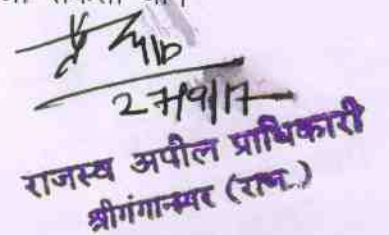 27/9/17
राजस्व अपील प्राधिकारी
श्रीगंगानगर (राज.)